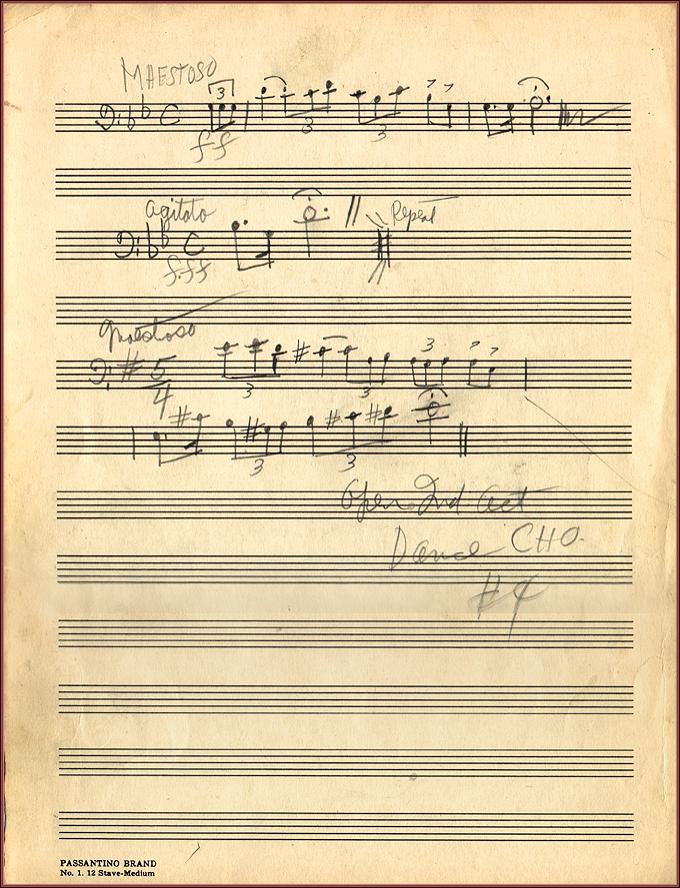 MAESTOSO
3
3 3
ff
agitato
Repeat
fff
maestoso
5
4
3
3 3
3 3
Open 2nd Act
Dance CHO.
#4
PASSANTINO BRAND
No. 1. 12 Stave-Medium